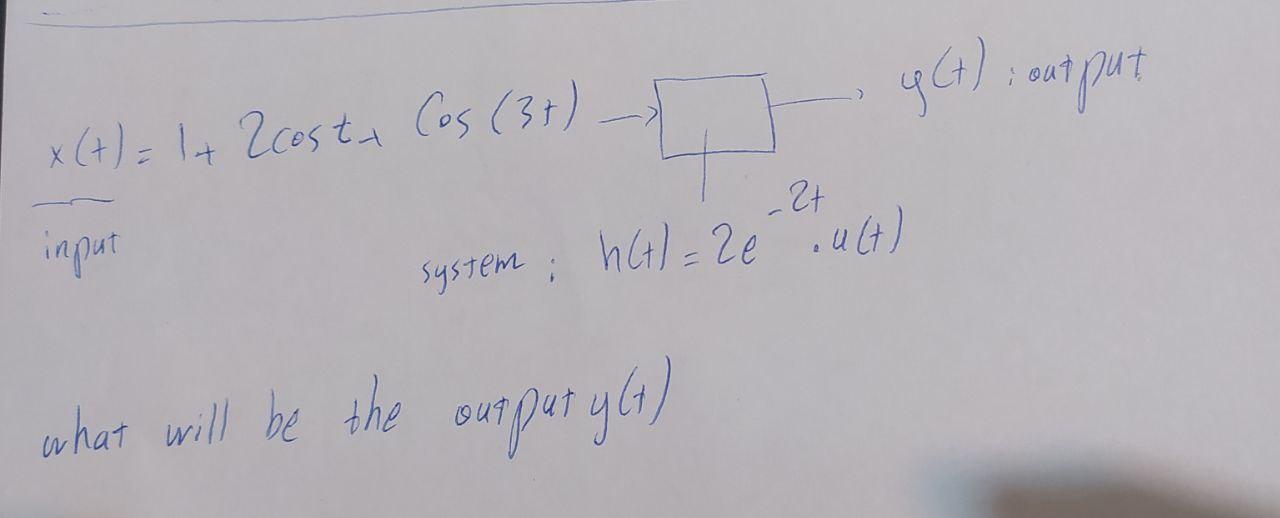 x(t) = 1 + 2cost + Cos(3t) → → y(t) : output
input
system : h(t) = 2e^-2t . u(t)
what will be the output y(t)